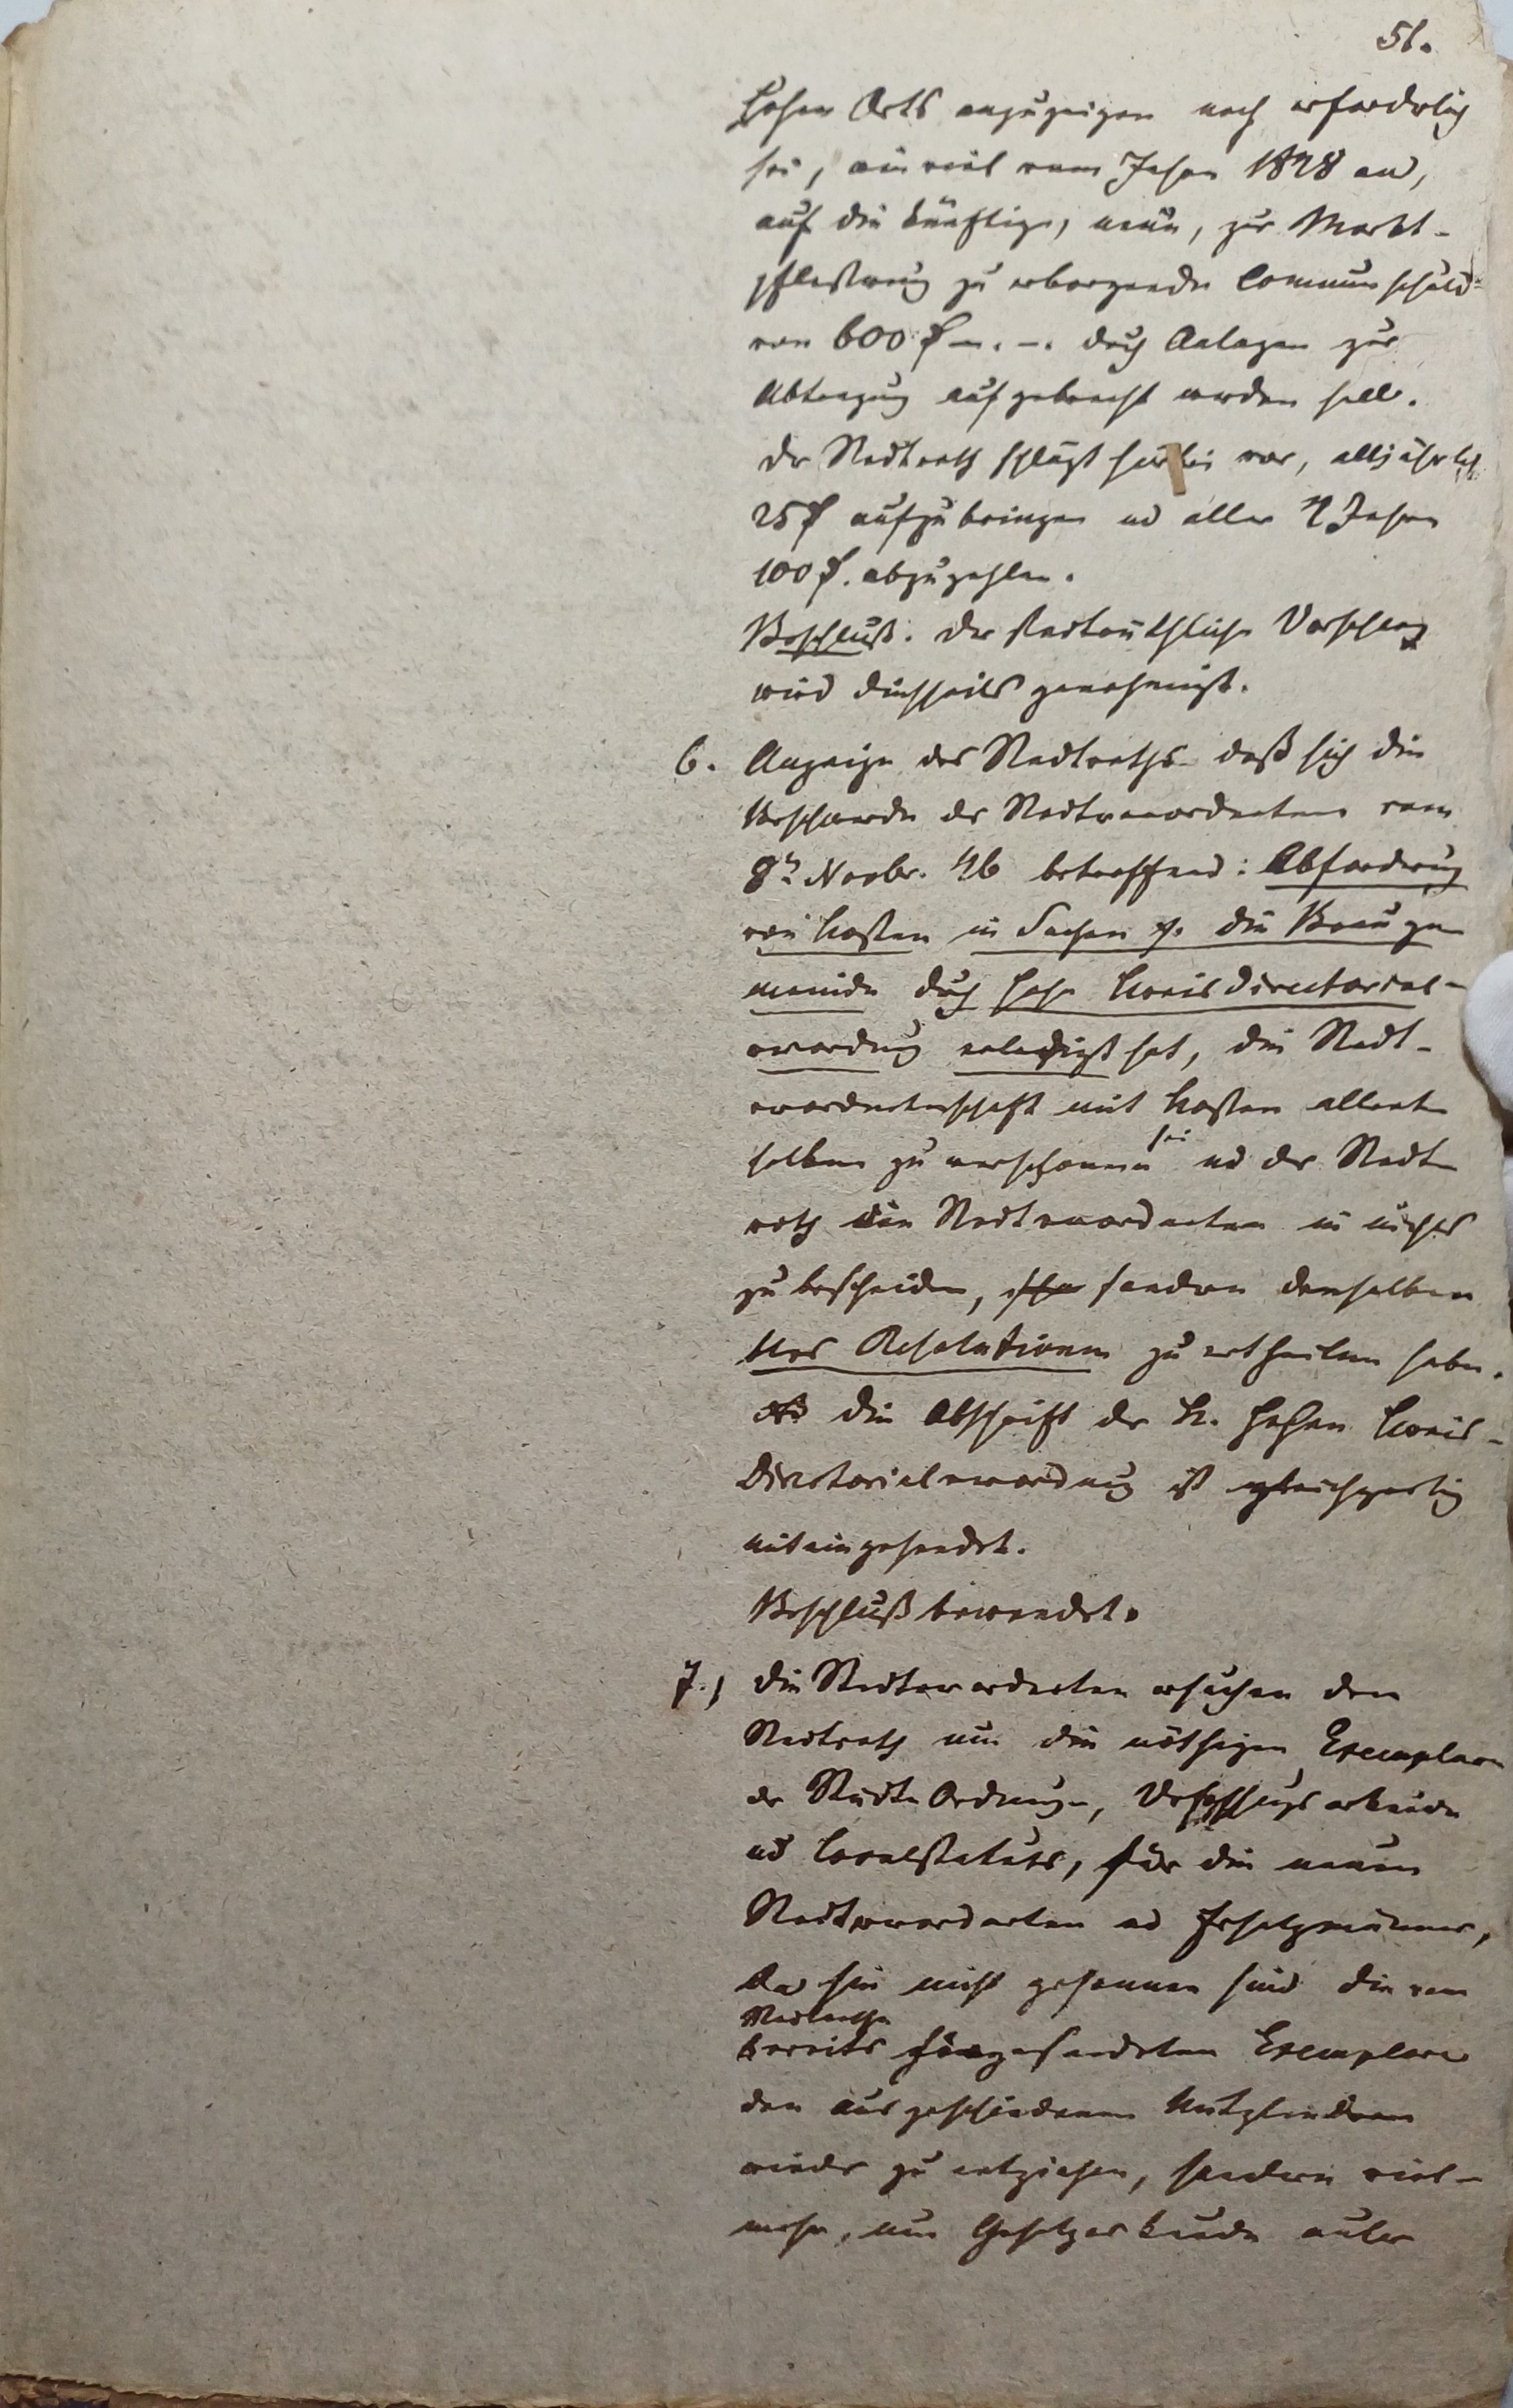 51.
Hohen Orts anzuzeigen noch erforderlich
sei, wie viel vom Jahre 1848 an,
auf die künftige, neue, zur Markt-
pflasterung zu erborgende Communschuld
von 600 f –. –. durch Anlagen zur
Abtragung aufgebracht werden soll.
Der Stadtrath schlägt hierbei vor, alljährlich
25 f aufzubringen und aller 4 Jahre
100 f. abzuzahlen.
Beschluß. Der stadträthliche Vorschlag
wird diesseits genehmigt.
6. Anzeige des Stadtraths daß sich die
Beschwerde der Stadtverordneten vom
8n Novbr. 46 betreffend: Abforderung
von Kosten in Sachen die Brauge-
meinde durch hohe Kreisdirectorial-
verordnung erledigt hat, die Stadt-
verordnetenschaft mit Kosten allent-
halben zu verschonen sei und der Stadt-
rath die Stadtverordneten in nichts
zu bescheiden, sondern denselben
blos Resolutionen zu ertheilen habe.
die Abschrift der K. hohen Kreis-
Directorialverordnung ist gleichzeitig
miteingesendet.
Beschluß bewendet.
7.) Die Stadtverordneten ersuchen den
Stadtrath um die nöthigen Exemplare
der Städte Ordnung, Verfassungsurkunde
und Localstatuts, für die neuen
Stadtverordneten und Ersatzmänner,
da sie nicht gesonnen sind die vom
Stadtrathe
bereits hergesendeten Exemplare
den ausgeschiedenen Mitgliedern
wieder zu entziehen, sondern viel-
mehr, um Gesetzeskunde unter